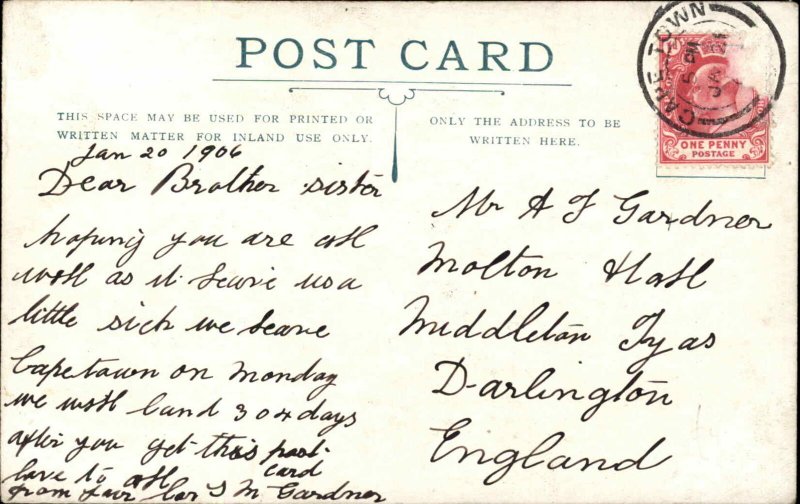 POST CARD
THIS SPACE MAY BE USED FOR PRINTED OR
WRITTEN MATTER FOR INLAND USE ONLY.
ONLY THE ADDRESS TO BE
WRITTEN HERE.
CAPE TOWN
5 PM
JA 21
ONE PENNY
POSTAGE
Jan 20 1906
Dear Brother sister
hoping you are all
well as it leave us a
little sick we leave
Capetown on Monday
we will land 3 or 4 days
after you get this post
card
love to all
from S M Gardner
Mr A J Gardner
Molton Hall
Middleton Tyas
Darlington
England